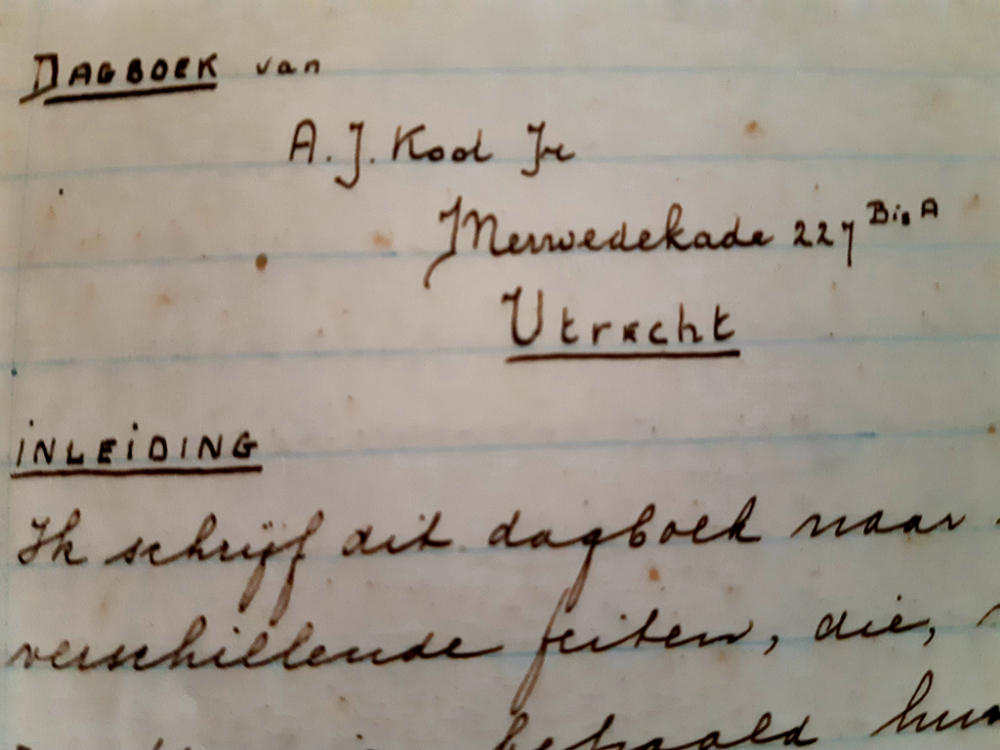 DAGBOEK van
A. J. Kool Jr
Merwedekade 227 Bis A
Utrecht
INLEIDING
Ik schrijf dit dagboek naar
verschillende feiten, die,
bepaald